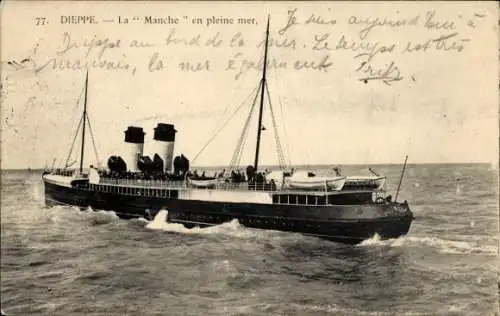 77. DIEPPE. – La " Manche " en pleine mer.
Je suis aujourd'hui à
Dieppe au bord de la mer. Le temps est très
mauvais, la mer également.
Fritz